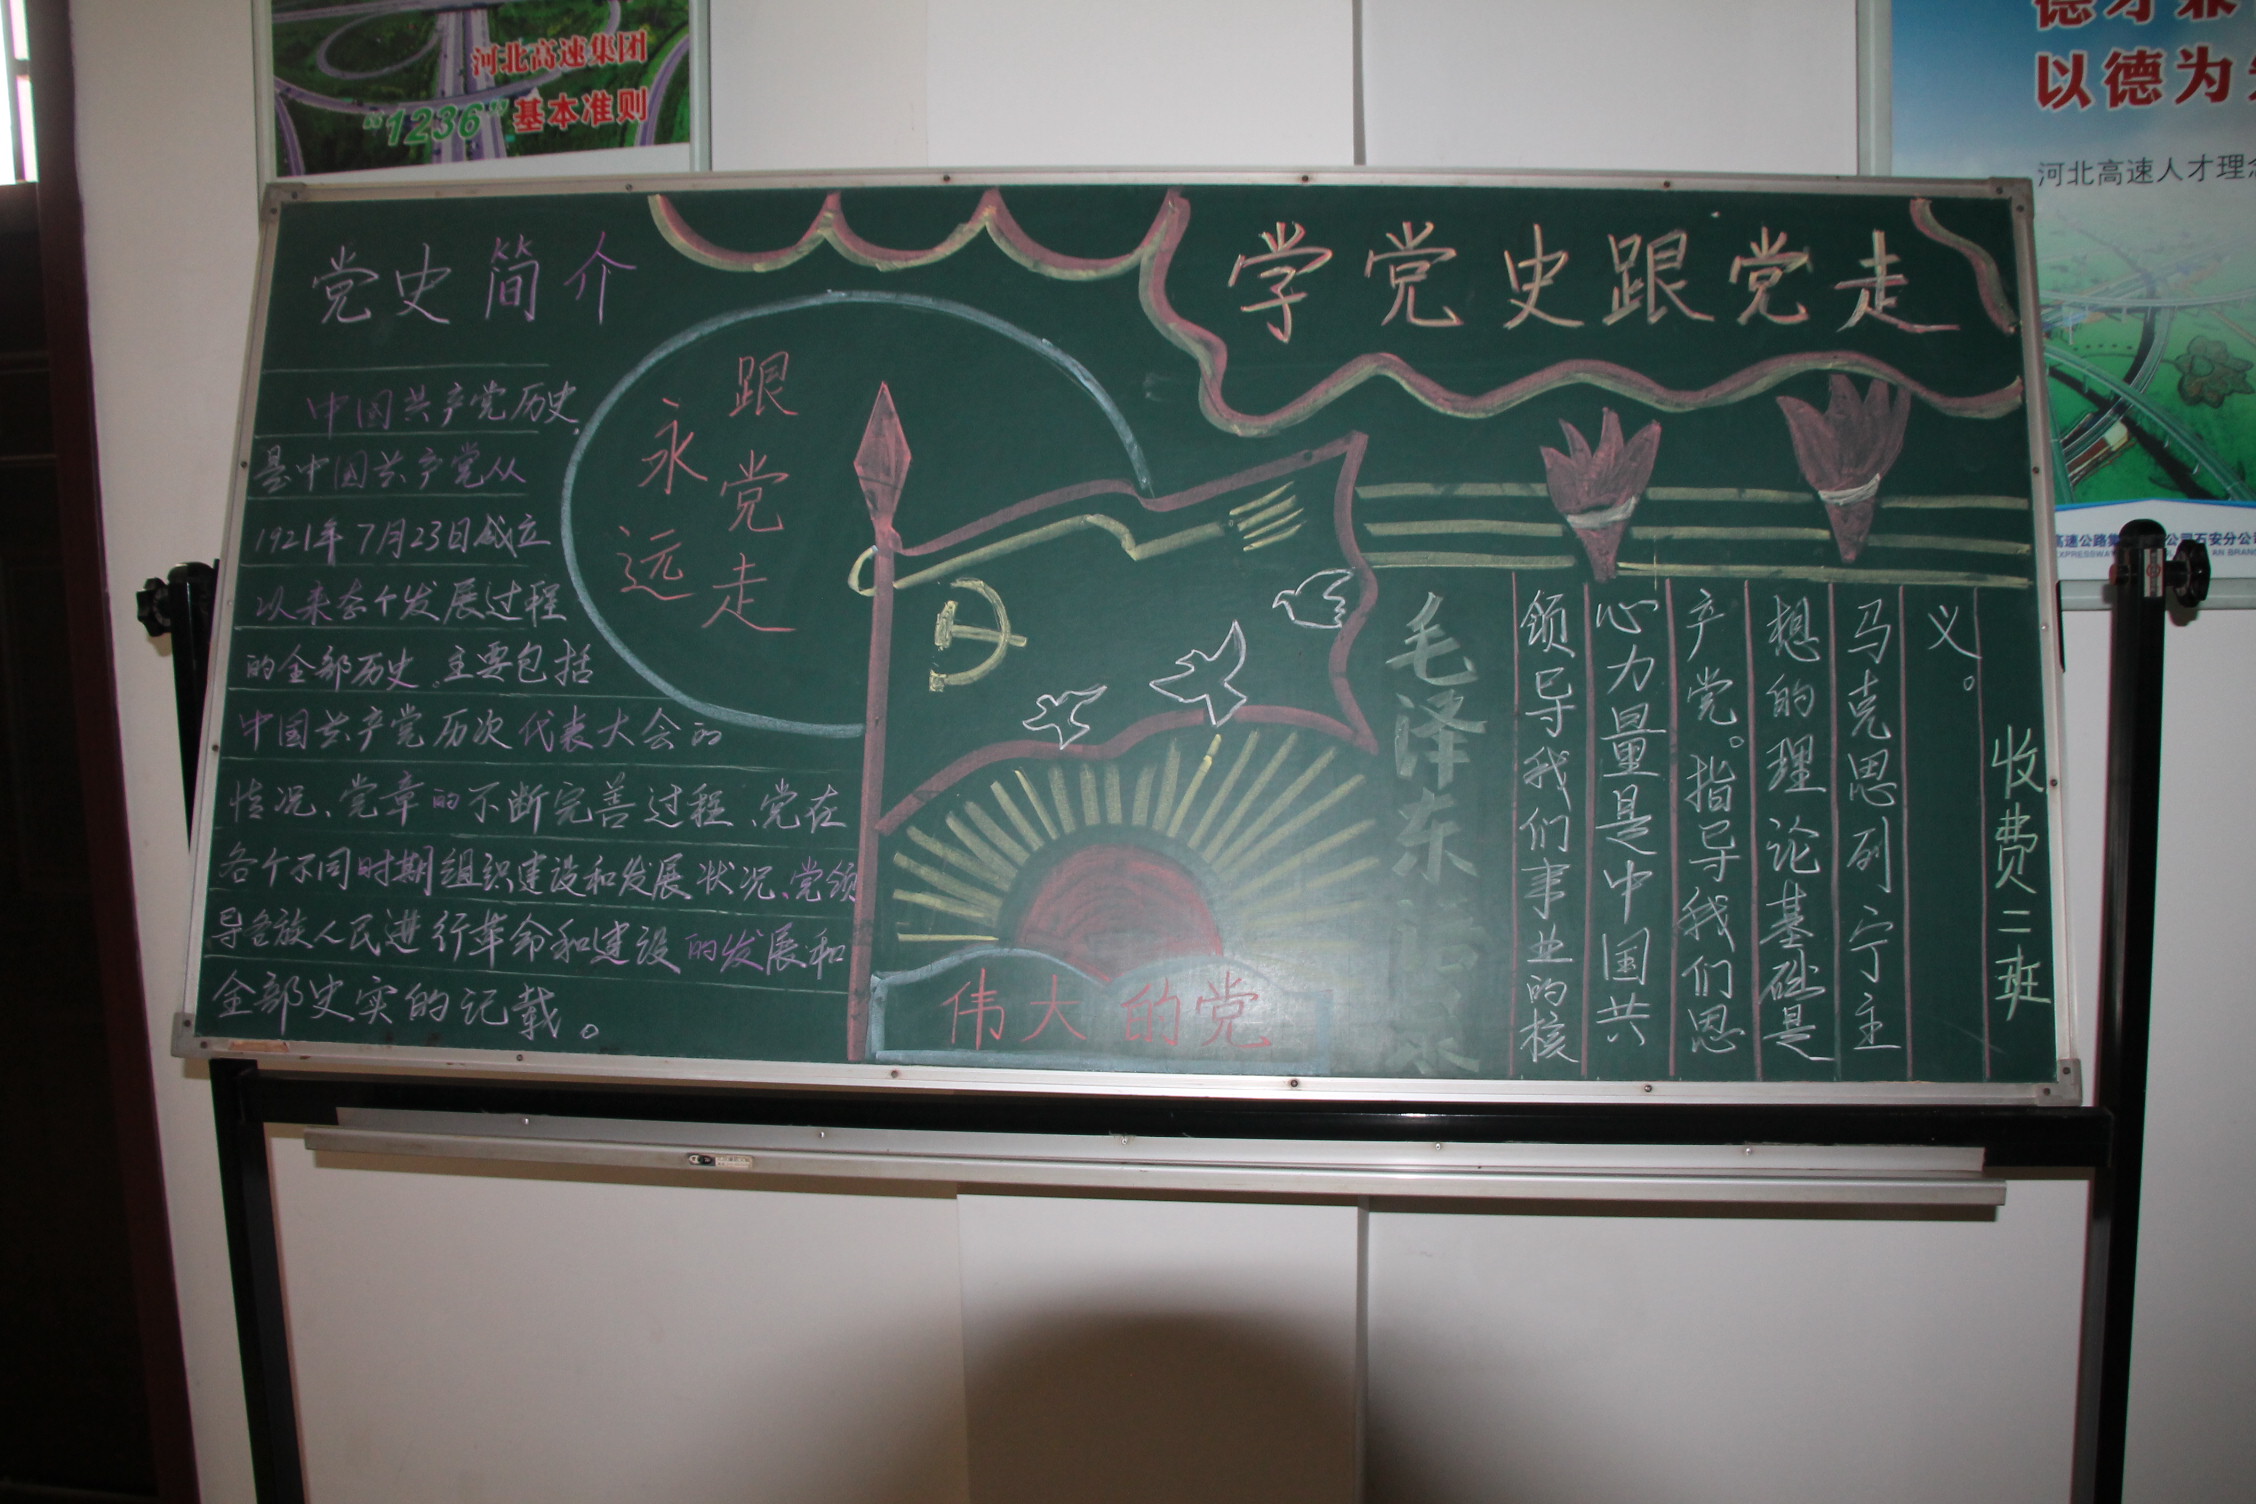 河北高速集团
“1236”基本准则
以德为
河北高速人才理念
党史简介
中国共产党历史,
是中国共产党从
1921年7月23日成立
以来整个发展过程
的全部历史。主要包括
中国共产党历次代表大会的
情况、党章的不断完善过程、党在
各个不同时期组织建设和发展状况、党领
导各族人民进行革命和建设的发展和
全部史实的记载。
永远
跟党走
伟大的党
学党史跟党走
毛泽东语录
领导我们事业的核
心力量是中国共
产党。指导我们思
想的理论基础是
马克思列宁主
义。
收费二班